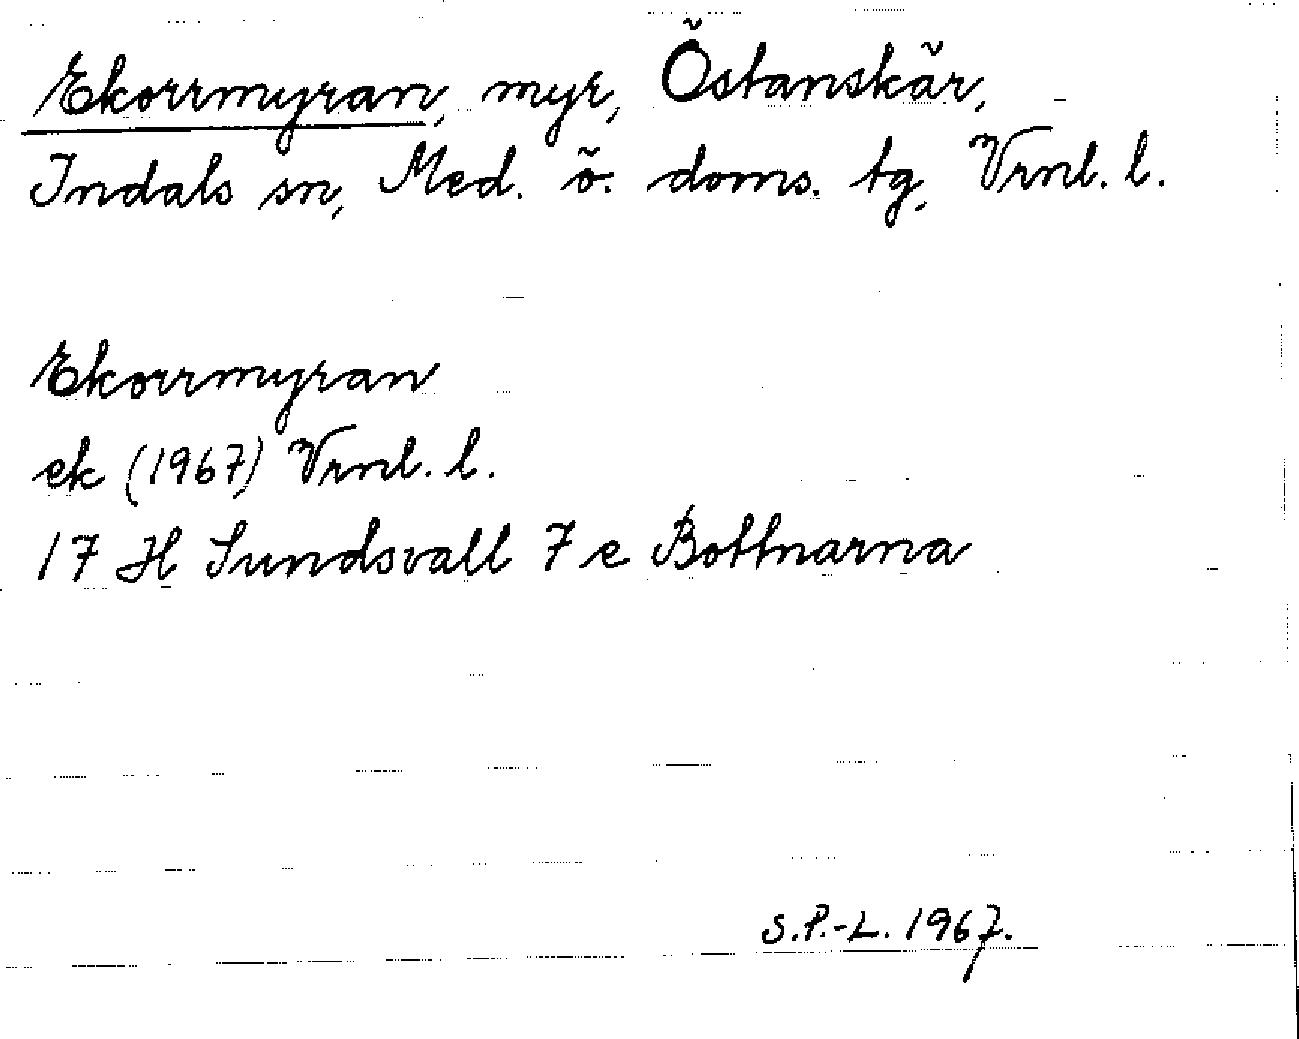 Ekorrmyran, myr, Östanskär,
Indals sn, Med. ö. doms. tg, Vrnl. l.
Ekorrmyran
ek (1967) Vrnl. l.
17 H Sundsvall 7 e Bottnarna
S.P.-L. 1967.